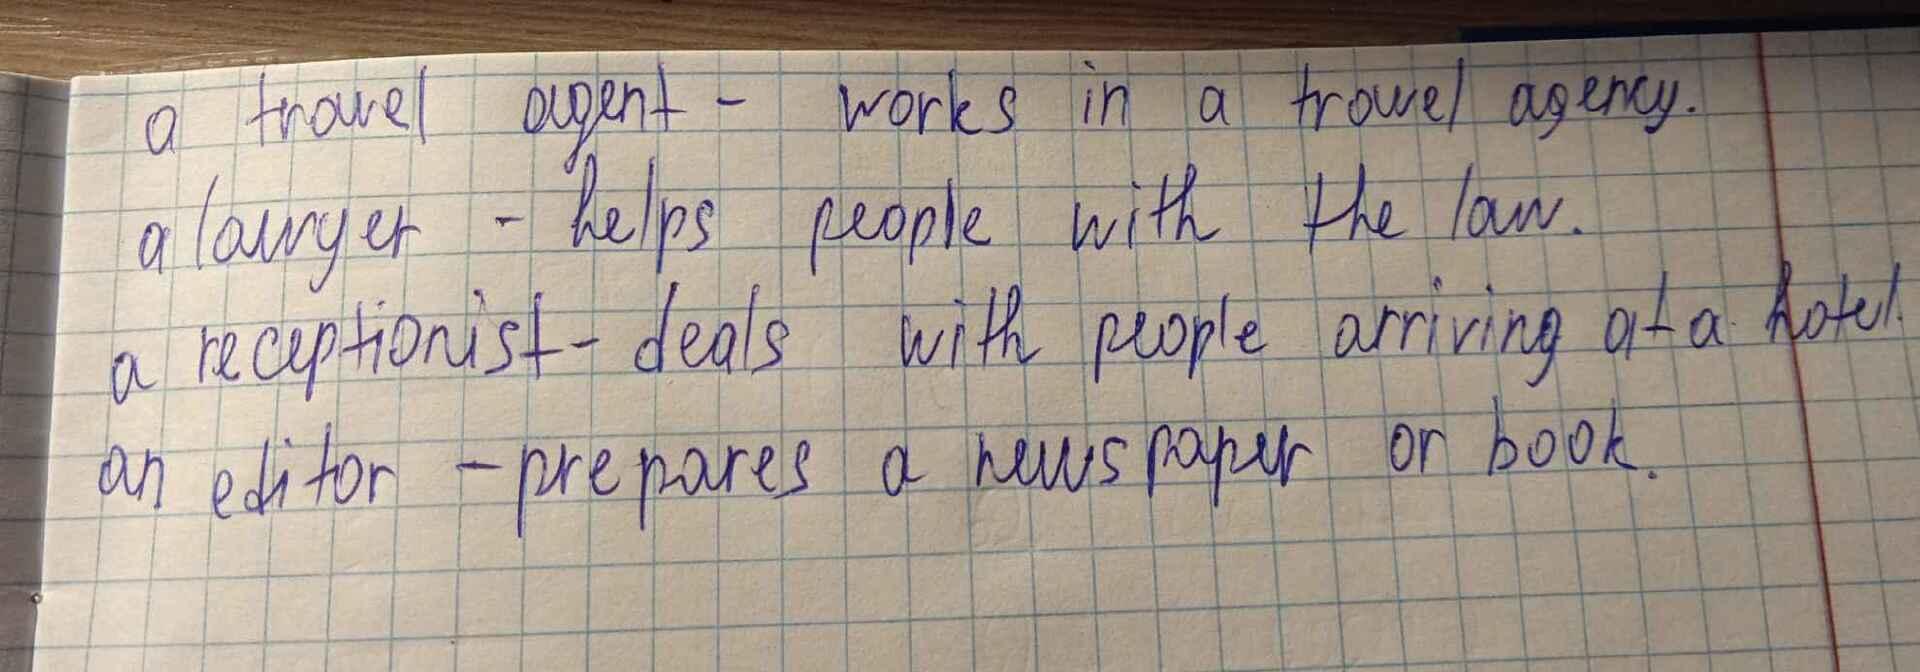 a travel agent - works in a travel agency.
a lawyer - helps people with the law.
a receptionist - deals with people arriving at a hotel.
an editor - prepares a newspaper or book.